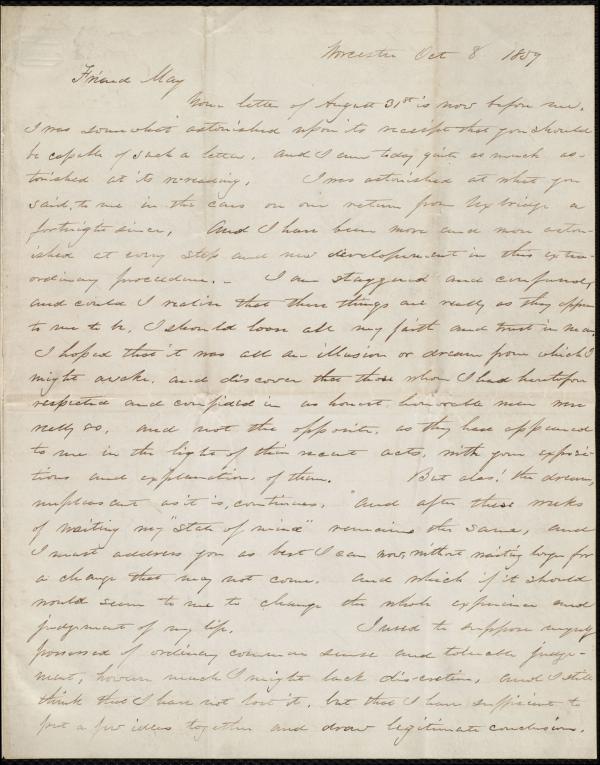 Worcester Oct 8 1859
Friend May
Your letter of August 31st is now before me.
I was somewhat astonished upon its receipt that you should
be capable of such a letter, and I am today quite as much as-
tonished at its re-reading. I was astonished at what you
said to me in the cars on our return from Uxbridge a
fortnight since, And I have been more and more aston-
ished at every step and new development in this extra-
ordinary procedure. - I am staggered and confused,
and could I realise that these things are really as they appear
to me to be, I should loose all my faith and trust in man.
I hoped that it was all an illusion or dream from which I
might awake, and discover that those whom I had heretofore
respected and confided in as honest honorable men were
really so, and not the opposite, as they have appeared
to me in the light of their recent acts, with your exposi-
tions and explanations of them. But alas! the dream,
unpleasant as it is, continues, and after these weeks
of waiting my "state of mind" remains the same, and
I must address you as best I can now, without waiting longer for
a change that may not come, and which if it should
would seem to me to change the whole experience and
judgement of my life. I used to suppose myself
possessed of ordinary common sense and tolerable judge-
ment, however much I might lack discretion, and I still
think that I have not lost it, but that I have sufficient to
put a few ideas together and draw legitimate conclusions.